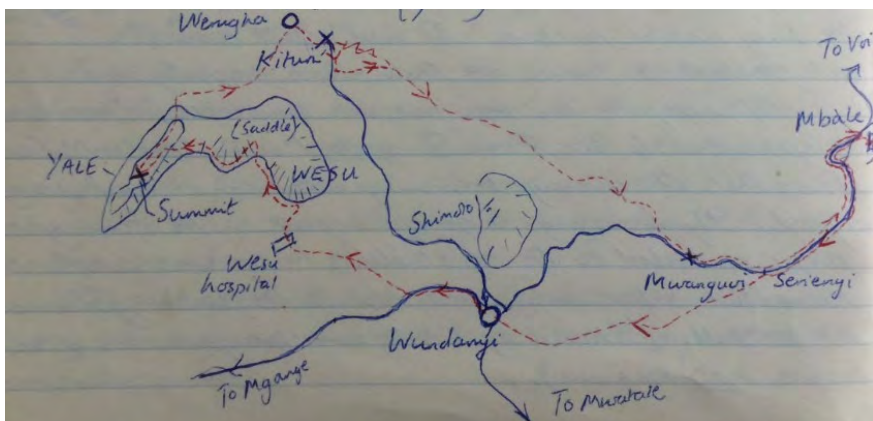 Werugha
Kituri
To Voi
Mbale
(Saddle)
YALE
WESU
Summit
Shimoto
Wesu
hospital
Mwanguwi
Serienyi
Wundanyi
To Mgange
To Mwatate